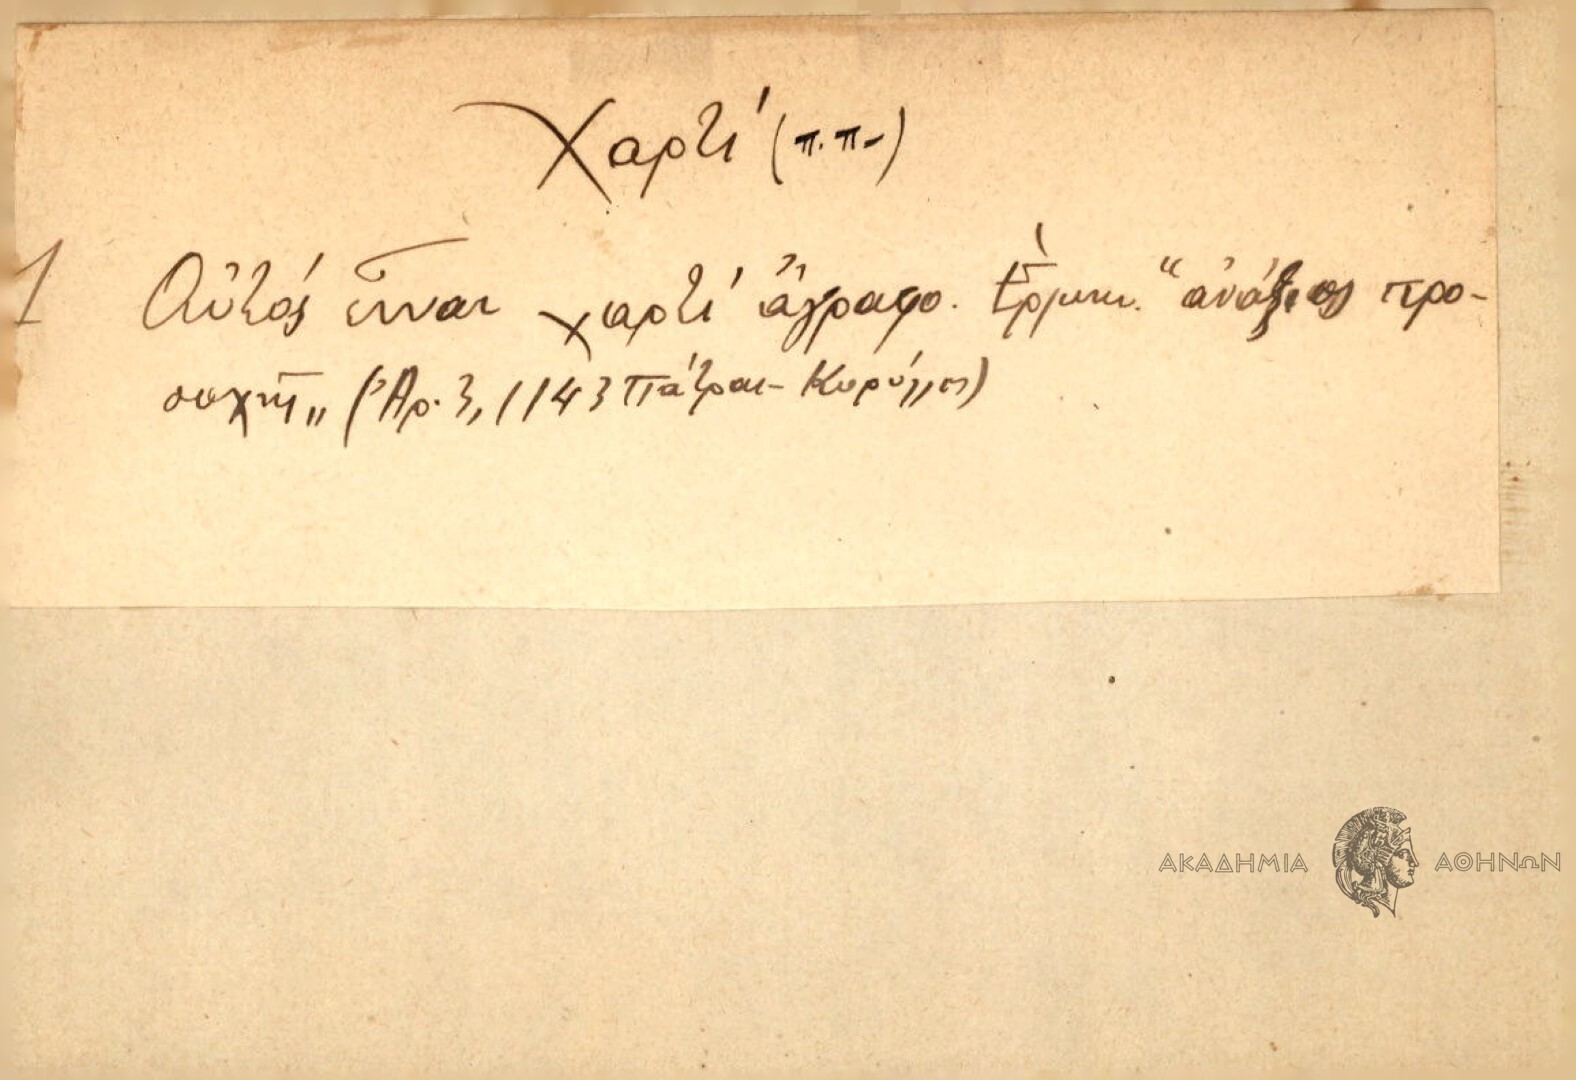 Χαρτί (π.π.)
1 Αὐτός εἶναι χαρτί ἄγραφο. Ἑρμην. "ἀνάξιος προ-
σοχῆς„ (Ἀρ. 3, 1143 Πάτραι-
ΑΚΑΔΗΜΙΑ ΑΘΗΝΩΝ